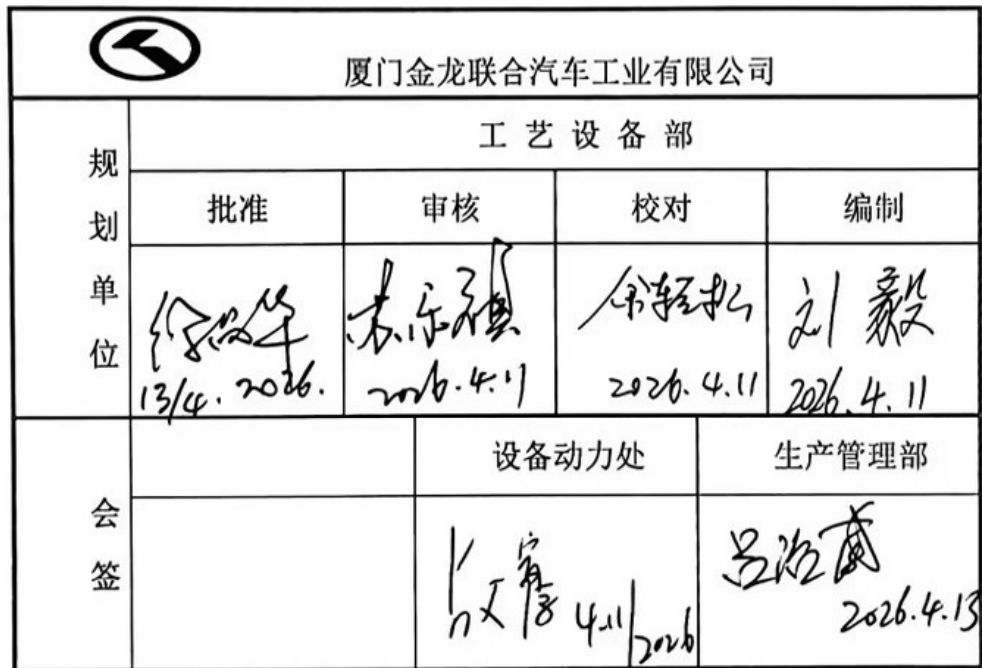 厦门金龙联合汽车工业有限公司
规划单位
工艺设备部
批准
审核
校对
编制
余轻松
刘毅
13/4.2026.
2026.4.11
2026.4.11
2026.4.11
会签
设备动力处
生产管理部
4.11/2026
2026.4.13